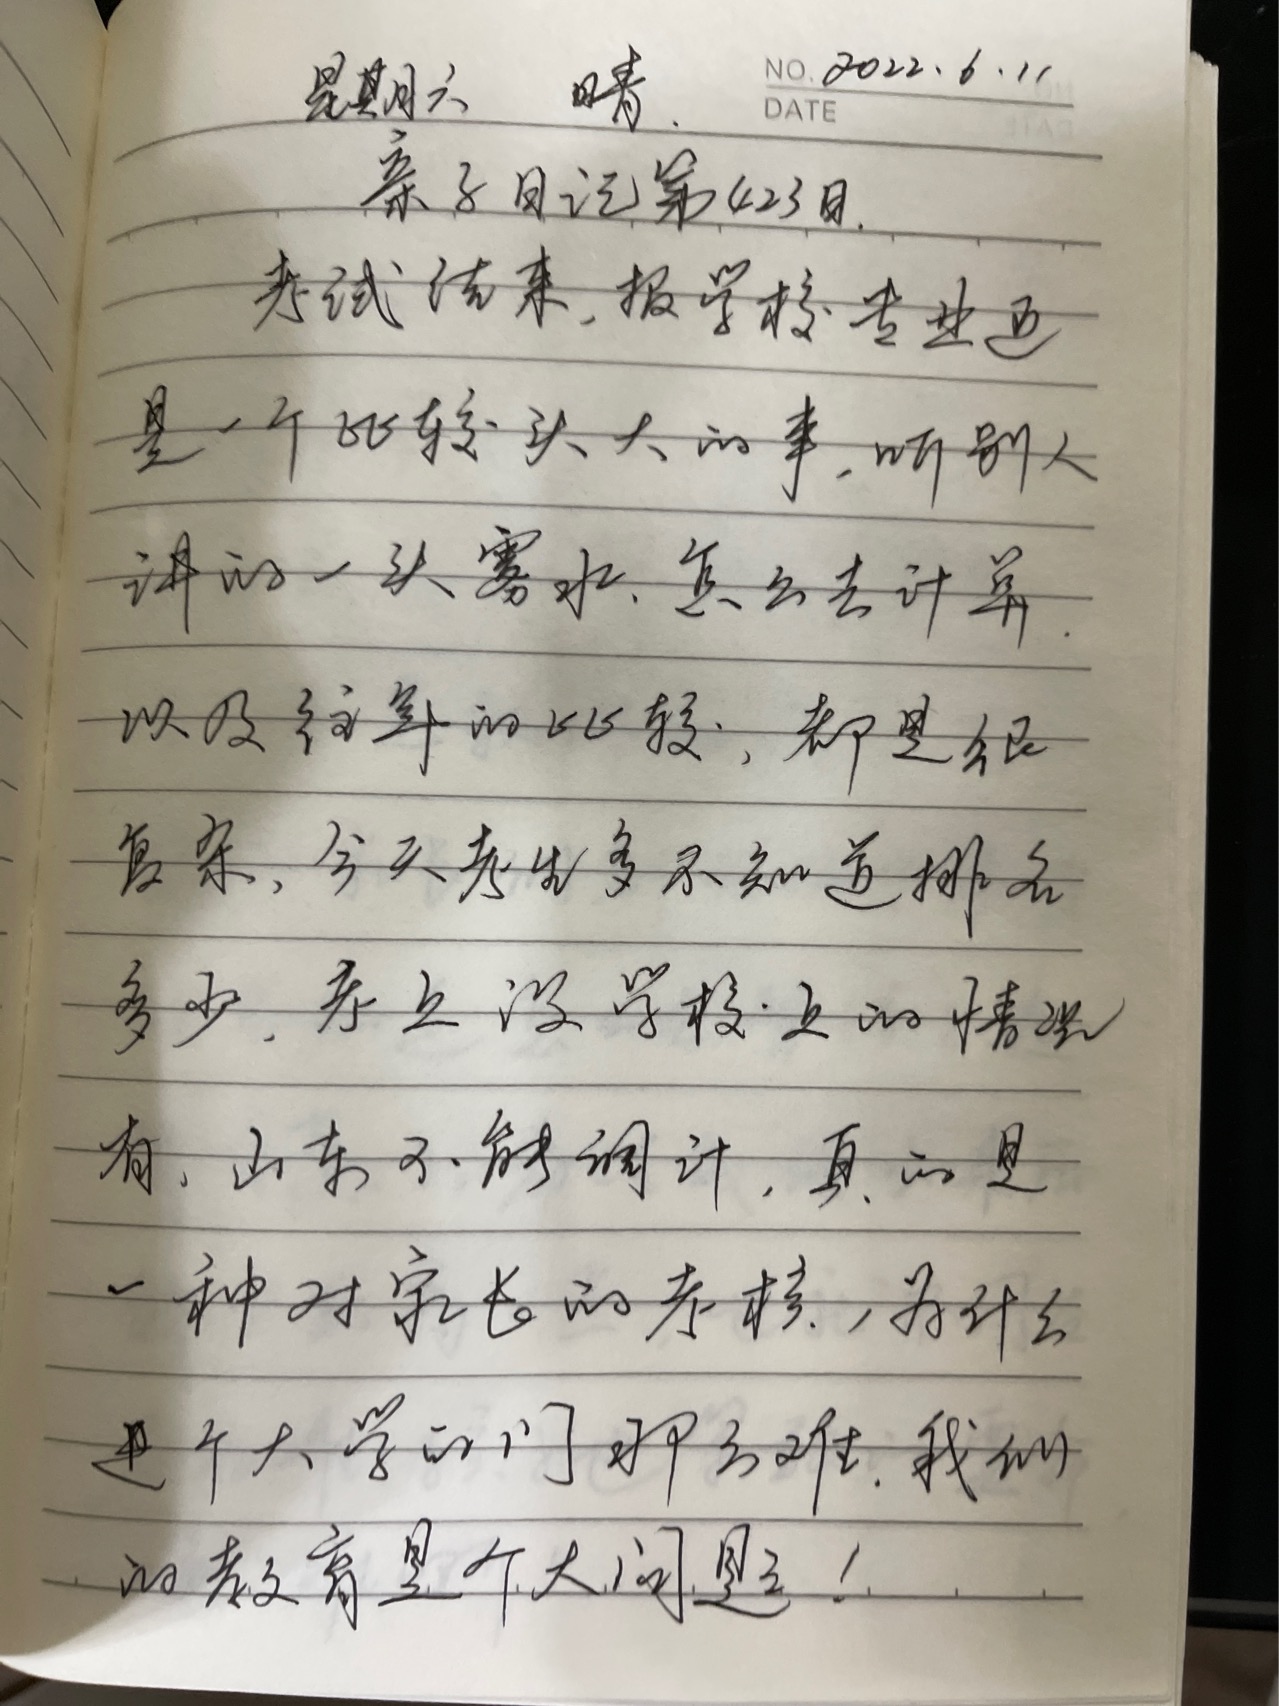 星期六 晴. NO. 2022.6.11
DATE
亲子日记第423日.
考试结束,报学校专业还
是一个比较头大的事,听别人
讲的一头雾水.怎么去计算.
以及往年的比较,都是很
复杂,今天考生多不知道排名
多少,考上没学校上的情况
有,山东不能调计,真的是
一种对家长的考核,为什么
进个大学的门那么难.我们
的教育是个大问题!